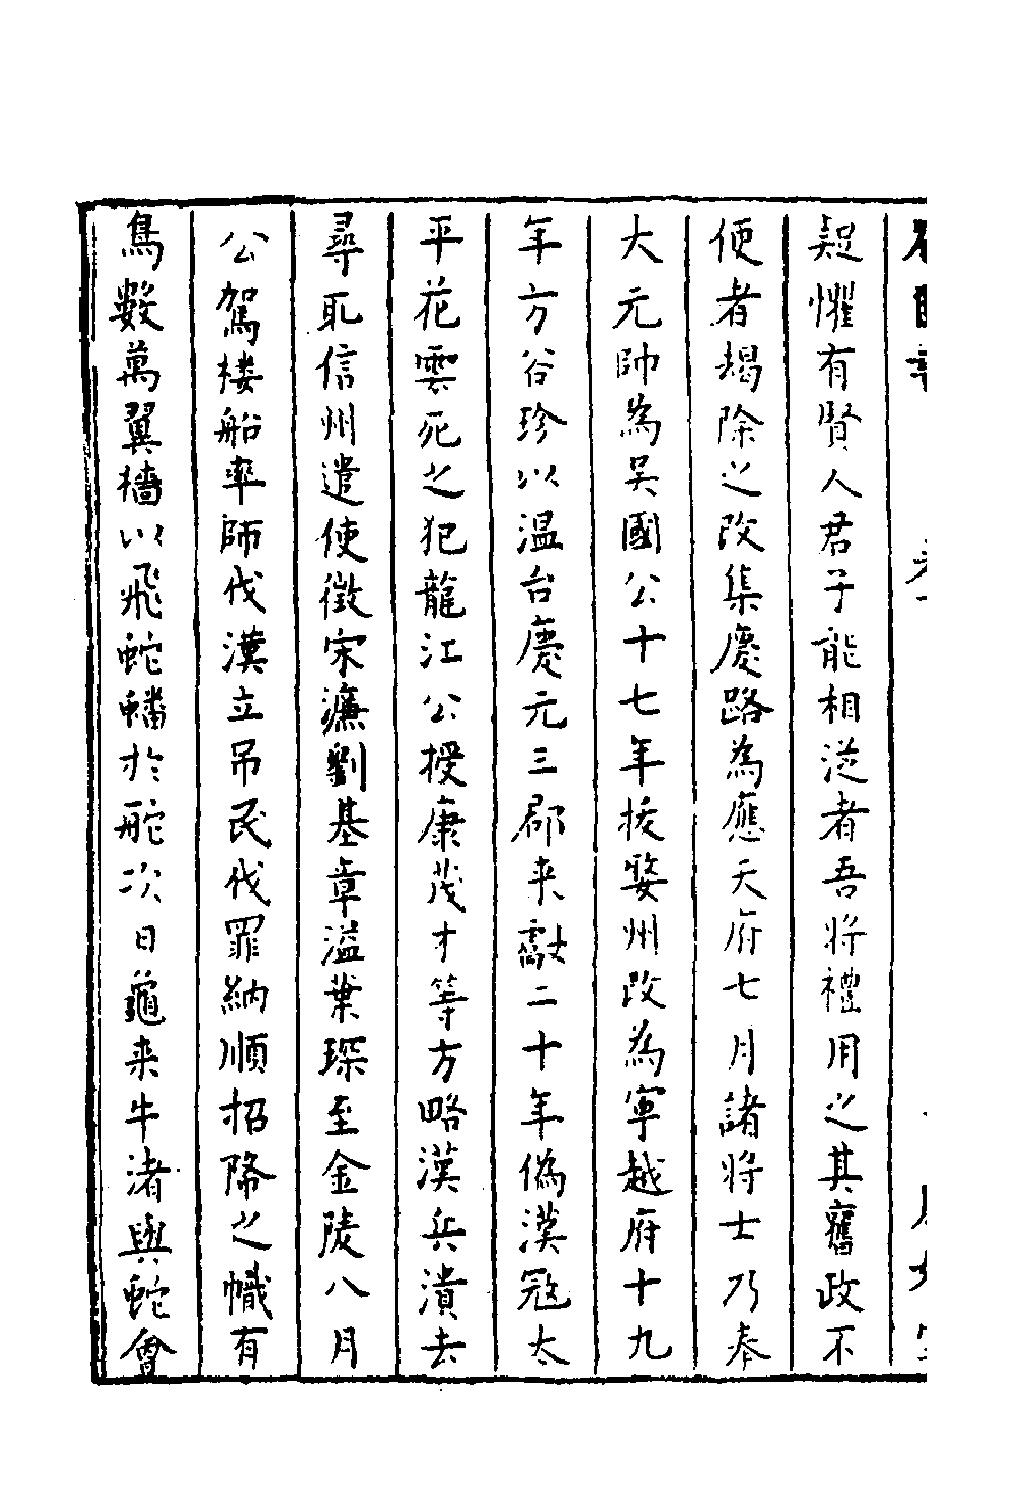 疑懼有賢人君子能相從者吾將禮用之其舊政不
便者朅除之改集慶路為應天府七月諸将士乃奉
大元帥為吴國公十七年捘婺州改為寧越府十九
年方谷珍以温台慶元三郡来獻二十年偽漢冦太
平花雲死之犯龍江公授康茂才等方略漢兵潰去
尋取信州遣使徵宋濂劉基章溢葉琛至金陵八月
公駕楼船率師伐漢立吊民伐罪納順招降之幟有
鳥數萬翼檣以飛蛇蟠於舵次日龜来牛渚與蛇會